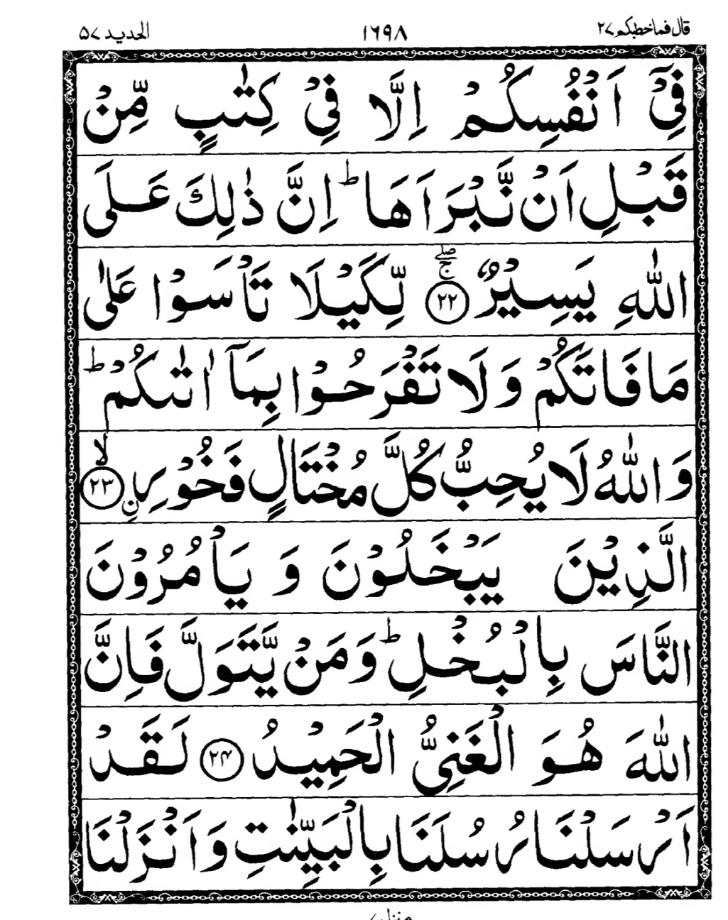 قال فماخطبكم ٢٧ ١٦٩٨ الحديد ٥٧
فِیْۤ اَنْفُسِكُمْ اِلَّا فِیْ كِتٰبٍ مِّنْ
قَبْلِ اَنْ نَّبْرَاَهَا ؕ اِنَّ ذٰلِكَ عَلَی
اللّٰهِ یَسِیْرٌ ﴿۲۲﴾ۚۖ لِّكَیْلَا تَاْسَوْا عَلٰی
مَا فَاتَكُمْ وَلَا تَفْرَحُوْا بِمَاۤ اٰتٰىكُمْ ؕ
وَاللّٰهُ لَا یُحِبُّ كُلَّ مُخْتَالٍ فَخُوْرِ ۣ ﴿۲۳﴾ۙ
الَّذِیْنَ یَبْخَلُوْنَ وَ یَاْمُرُوْنَ
النَّاسَ بِالْبُخْلِ ؕ وَمَنْ یَّتَوَلَّ فَاِنَّ
اللّٰهَ هُوَ الْغَنِیُّ الْحَمِیْدُ ﴿۲۴﴾ لَقَدْ
اَرْسَلْنَا رُسُلَنَا بِالْبَیِّنٰتِ وَاَنْزَلْنَا